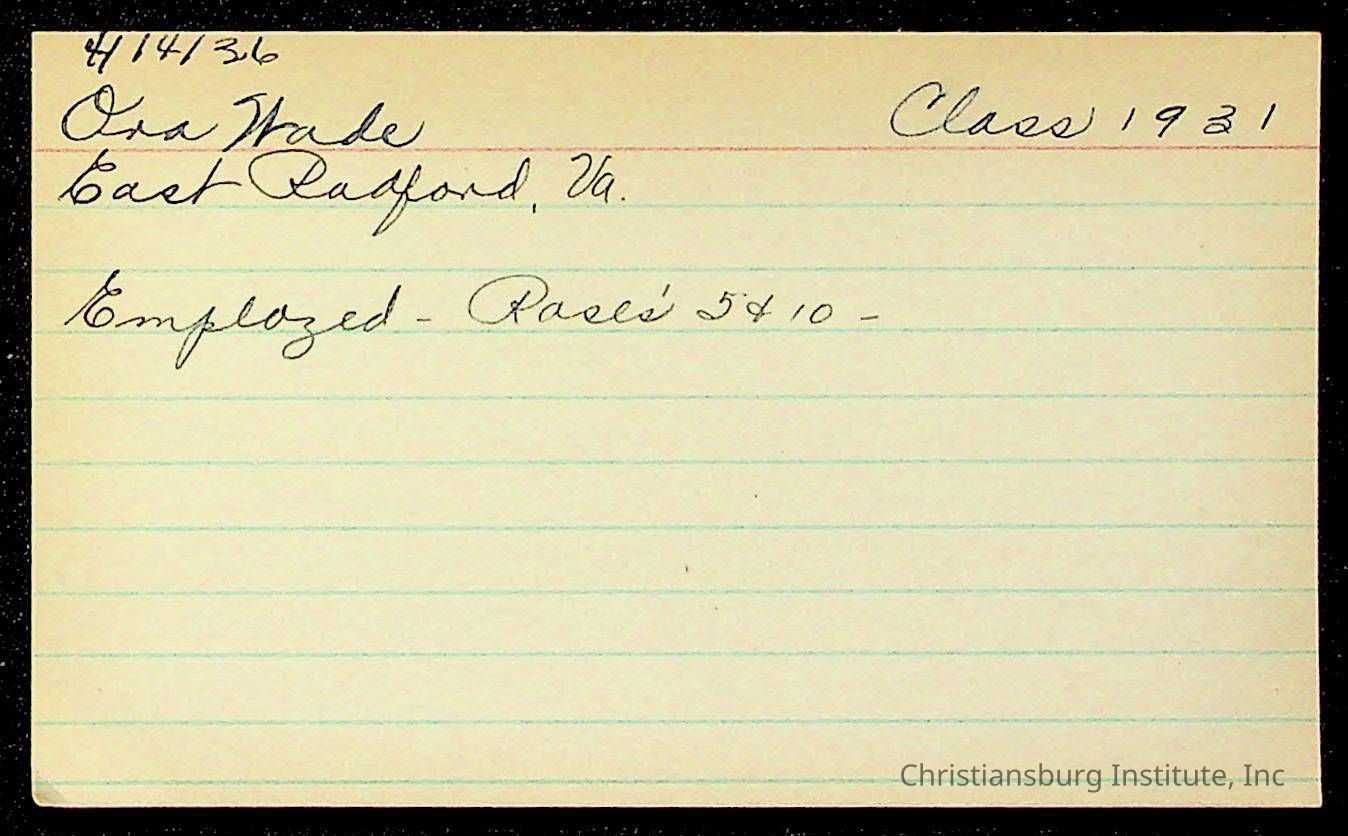 4/14/36
Ora Wade Class 1931
East Radford, Va.
Employed - Rose's 5 & 10 -
Christiansburg Institute, Inc